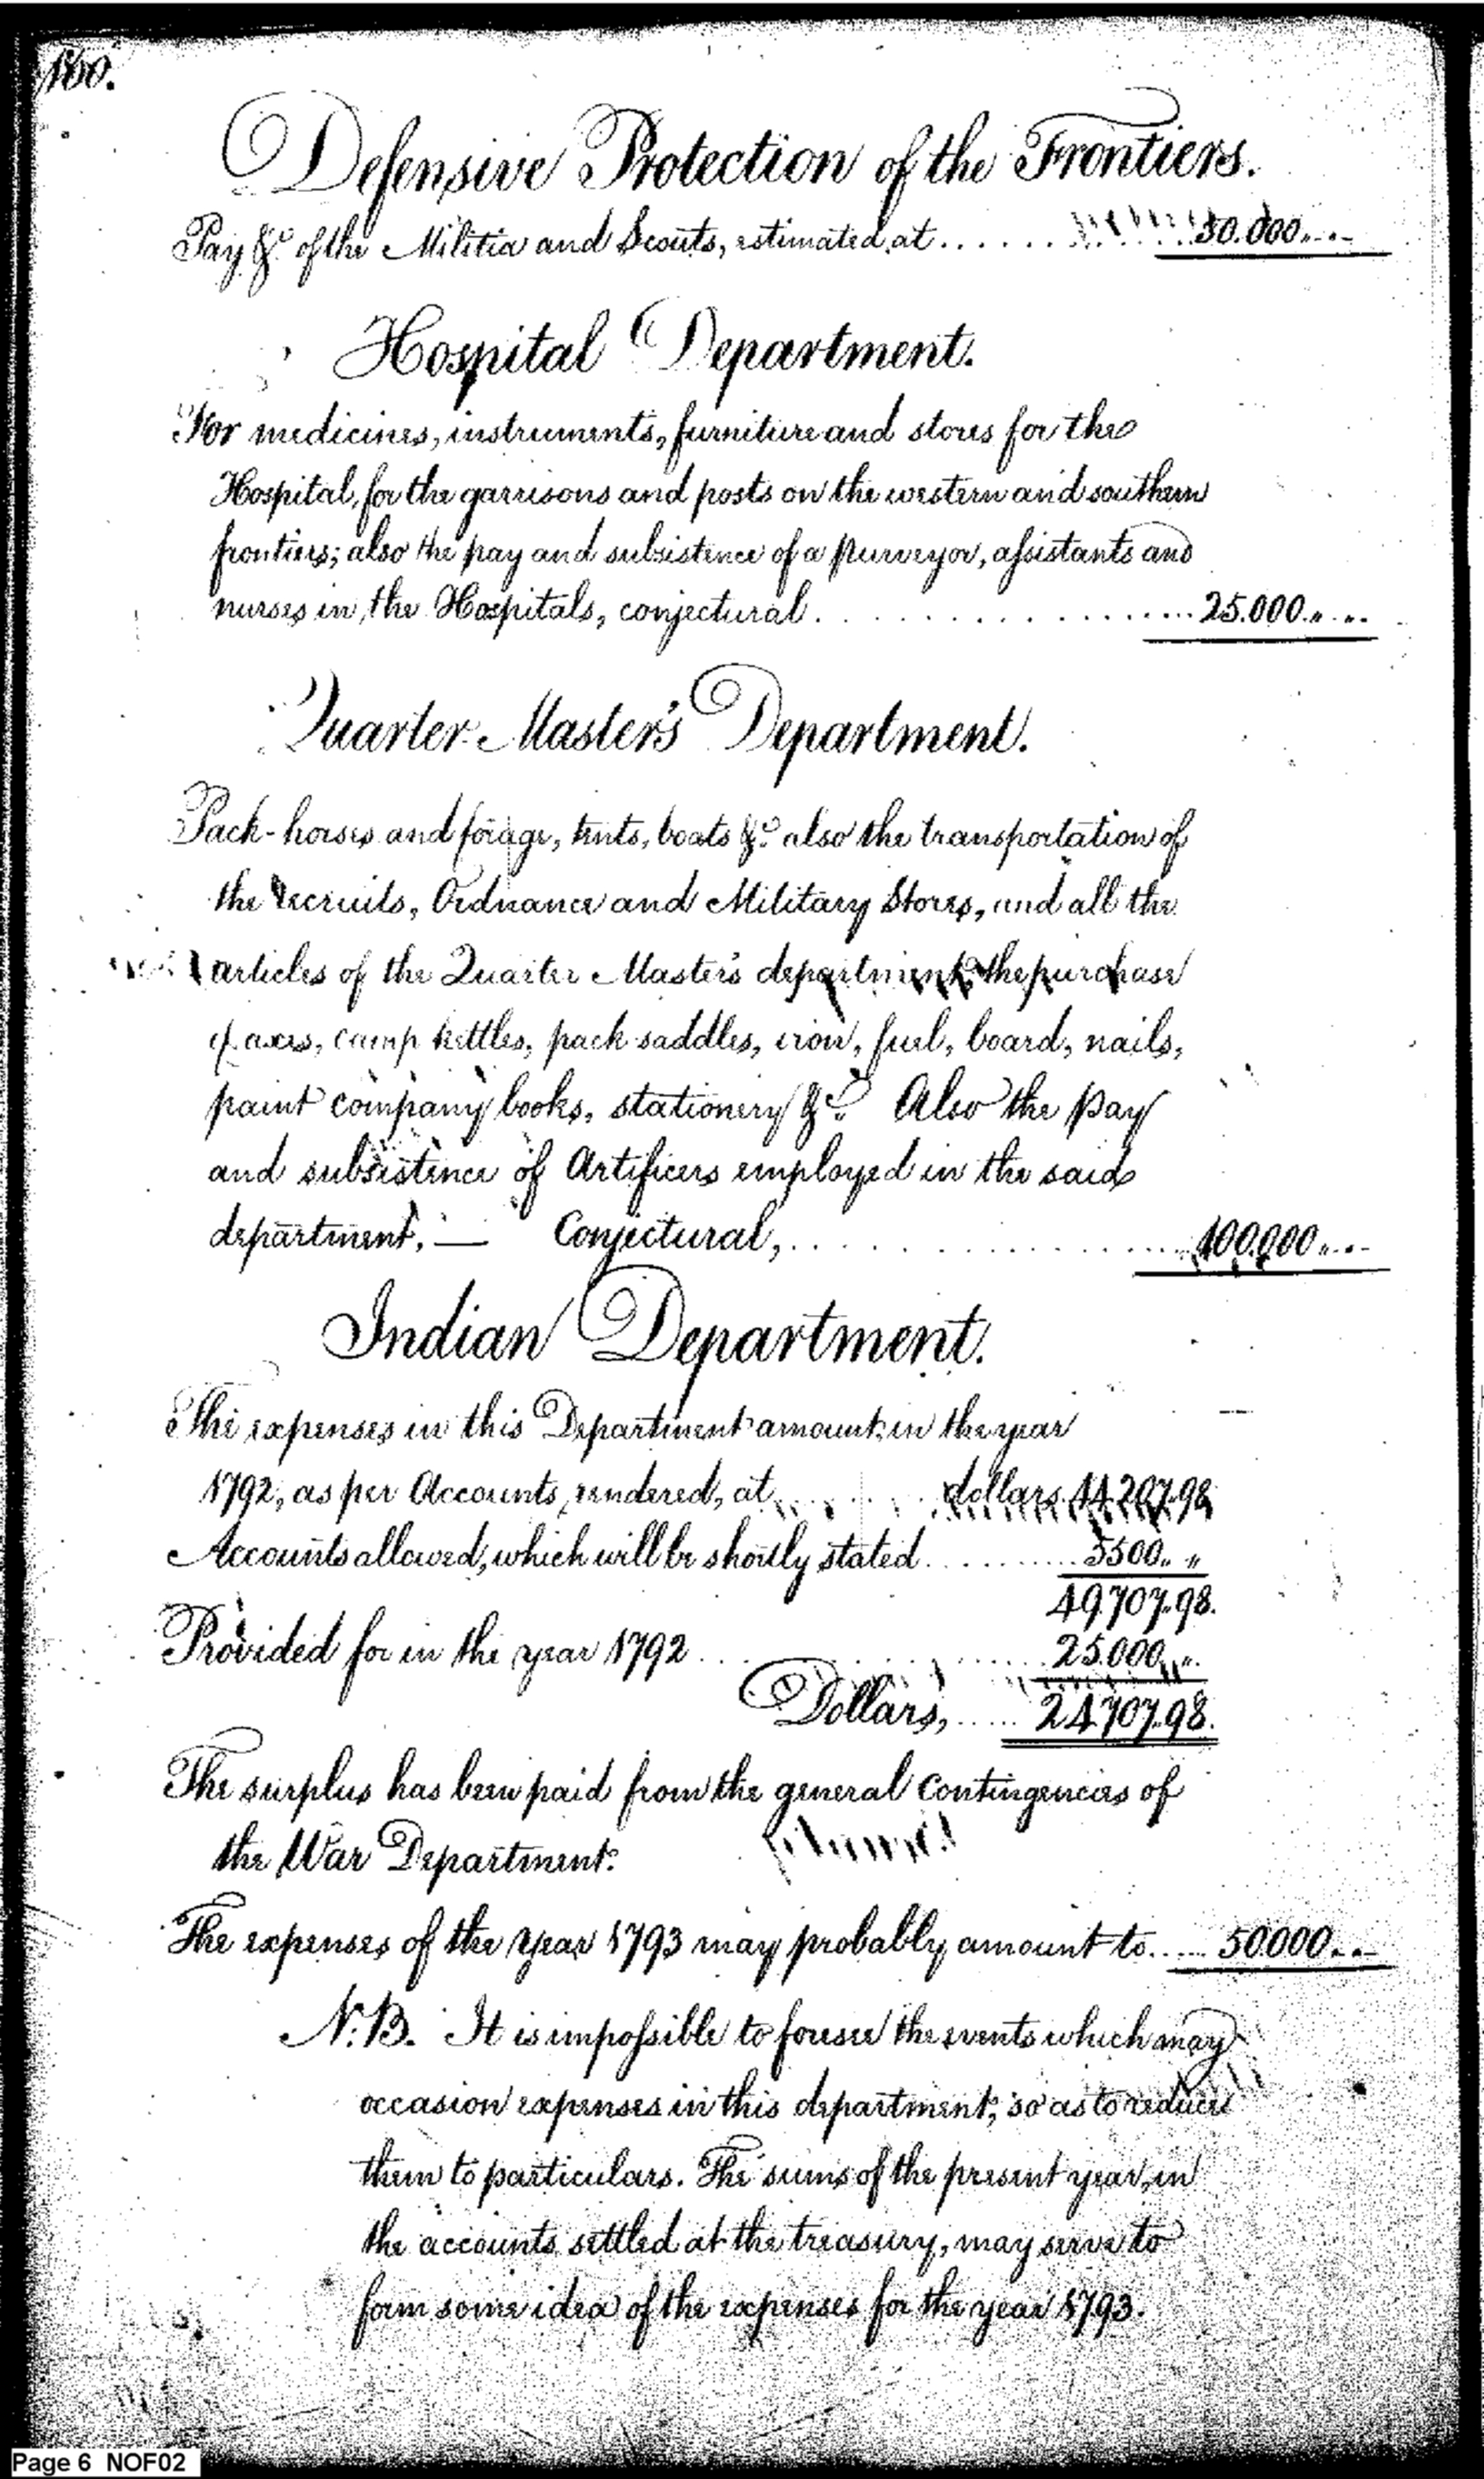 160.
Defensive Protection of the Frontiers.
Pay &c. of the Militia and Scouts, estimated at ........ 50.000.,...
Hospital Department.
For medicines, instruments, furniture and stores for the
Hospital, for the garrisons and posts on the western and southern
frontiers; also the pay and subsistence of a purveyor, assistants and
nurses in the Hospitals, conjectural ................ 25.000.,...
Quarter Master's Department.
Pack-horses and forage, tents, boats &c. also the transportation of
the recruits, Ordnance and Military Stores, and all the
articles of the Quarter Master's department, the purchase
of axes, camp kettles, pack saddles, iron, fuel, board, nails,
paint company books, stationery &c. Also the pay
and subsistence of Artificers employed in the said
department. — Conjectural, ................ 100.000.,...
Indian Department.
The expenses in this Department amount, in the year
1792, as per Accounts rendered, at ........ dollars 44.207.98
Accounts allowed, which will be shortly stated .......... 5500.. "
49.707.98.
Provided for in the year 1792 ............ 25.000.,".
Dollars, ..... 24.707.98.
The surplus has been paid from the general contingencies of
the War Department.
The expenses of the year 1793 may probably amount to ..... 50000...
N.B. It is impossible to foresee the events which may
occasion expenses in this department, so as to reduce
them to particulars. The sums of the present year, in
the accounts settled at the treasury, may serve to
form some idea of the expenses for the year 1793.
Page 6 NOF02